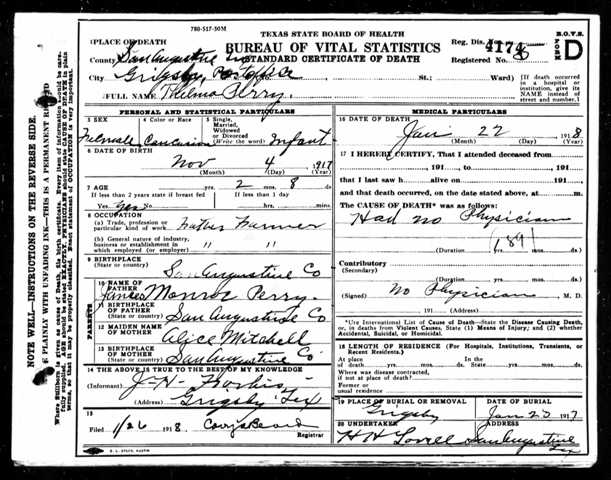 780-517-50M
TEXAS STATE BOARD OF HEALTH
BUREAU OF VITAL STATISTICS
STANDARD CERTIFICATE OF DEATH
Reg. Dis. No.
4174
Registered No. 8
B.O.V.S.
FORM
D
PLACE OF DEATH
County San Augustine
City Grigsby, Postoffice St.; Ward)
[If death occurred in a hospital or institution, give its NAME instead of street and number.]
FULL NAME Thelma Perry
PERSONAL AND STATISTICAL PARTICULARS
3 SEX
4 Color or Race
5 Single, Married, Widowed or Divorced (Write the word)
Infant
6 DATE OF BIRTH
Nov 4 1917
(Month) (Day) (Year)
7 AGE yrs. 2 mos. 8 ds.
If less than 2 years state if breast fed
If less than 1 day
Yes yes No hrs. mins.
8 OCCUPATION
(a) Trade, profession or particular kind of work Father Farmer
(b) General nature of industry, business or establishment in which employed (or employer) " "
9 BIRTHPLACE
(State or country) San Augustine Co
PARENTS
10 NAME OF FATHER James Monroe Perry.
11 BIRTHPLACE OF FATHER
(State or country) San Augustine Co
12 MAIDEN NAME OF MOTHER Alice Mitchell
13 BIRTHPLACE OF MOTHER
(State or country) San Augustine Co
14 THE ABOVE IS TRUE TO THE BEST OF MY KNOWLEDGE
(Informant) J-H-
(Address) Grigsby Tex
15
Filed 1/26 1918
Registrar
MEDICAL PARTICULARS
16 DATE OF DEATH
Jan 22 1918
(Month) (Day) (Year)
17 I HEREBY CERTIFY, That I attended deceased from
191 , to 191
that I last saw h alive on 191
and that death occurred, on the date stated above, at m.
The CAUSE OF DEATH* was as follows:
Had no Physician
(189)
(Duration) yrs. mos. ds.
Contributory
(Secondary)
(Duration) yrs. mos. ds.
(Signed) No Physician, M. D.
191 (Address)
*Use International List of Cause of Death—State the Disease Causing Death, or, in deaths from Violent Causes, State (1) Means of Injury; and (2) whether Accidental, Suicidal, or Homicidal.
18 LENGTH OF RESIDENCE (For Hospitals, Institutions, Transients, or Recent Residents.)
At place of death yrs. mos. ds.
In the State yrs. mos. ds.
Where was disease contracted, if not at place of death?
Former or usual residence
19 PLACE OF BURIAL OR REMOVAL
Grigsby
DATE OF BURIAL
Jan 23 1917
20 UNDERTAKER
H H Lovell
ADDRESS
San Augustine Tex
NOTE WELL—INSTRUCTIONS ON THE REVERSE SIDE.
E PLAINLY WITH UNFADING INK—THIS IS A PERMANENT RECORD